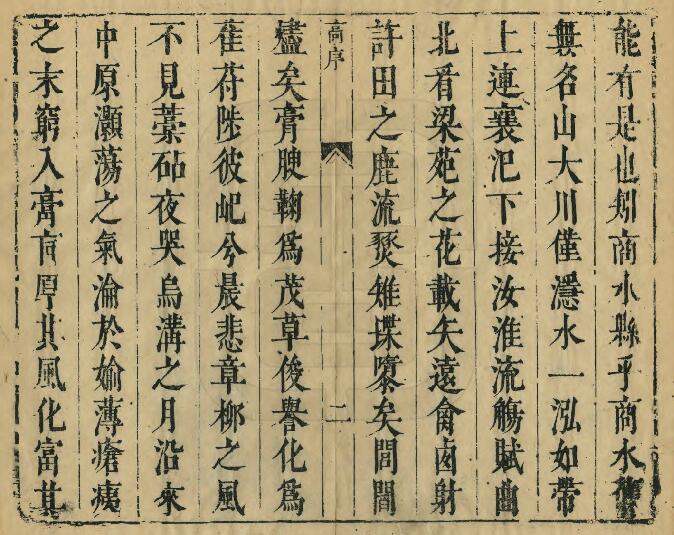 能有是也矧商水縣乎商水舊
無名山大川僅濦水一泓如帶
上連襄汜下接汝淮流觴賦曲
北看梁苑之花載矢遠禽鹵射
許田之鹿流燹雉堞隳矣閭閻
高序 二
燼矣膏腴鞠為茂草俊譽化為
萑苻陟彼屺兮晨悲章柳之風
不見藁砧夜哭烏溝之月沿來
中原灝蕩之氣淪於媮薄瘡痍
之末窮入膏肓厚其風化富其